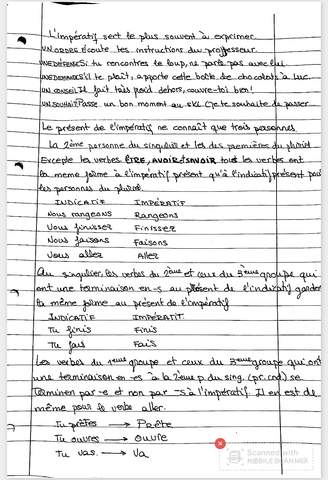 L'impératif sert le plus souvent à exprimer.
UN ORDRE écoute les instructions du professeur.
UNE DÉFENSE Si tu rencontres le loup, ne parle pas avec lui
UNE DEMANDE S'il te plaît, apporte cette boîte de chocolats à Luc.
UN CONSEIL Il fait très froid dehors, couvre-toi bien!
UN SOUHAIT Passe un bon moment au ski (Je te souhaite de passer
Le présent de l'impératif ne connaît que trois personnes.
La 2ème personne du singulier et les des premières du pluriel
Excepté les verbes ÊTRE, AVOIR, SAVOIR tous les verbes ont
la meme forme à l'impératif présent qu'à l'indicatif présent pour
les personnes du pluriel.
INDICATIF IMPÉRATIF
Nous rangeons Rangeons
Vous finissez Finissez
Nous faisons Faisons
Vous allez Allez
Au singulier, les verbes du 2ème et ceux du 3ème groupe qui
ont une terminaison en -s au présent de l'indicatif gardent
la même forme au présent de l'impératif
INDICATIF IMPÉRATIF
Tu finis Finis
Tu fais Fais
Les verbes du 1ème groupe et ceux du 3ème groupe qui ont
une terminaison en -es à la 2ème p. du sing. (pr. ind) se
terminent par -e et non par -s à l'impératif. Il en est de
même pour le verbe aller.
Tu prêtes → Prête
Tu ouvres → ouvre
Tu vas → Va
Scanned with
MOBILE SCANNER